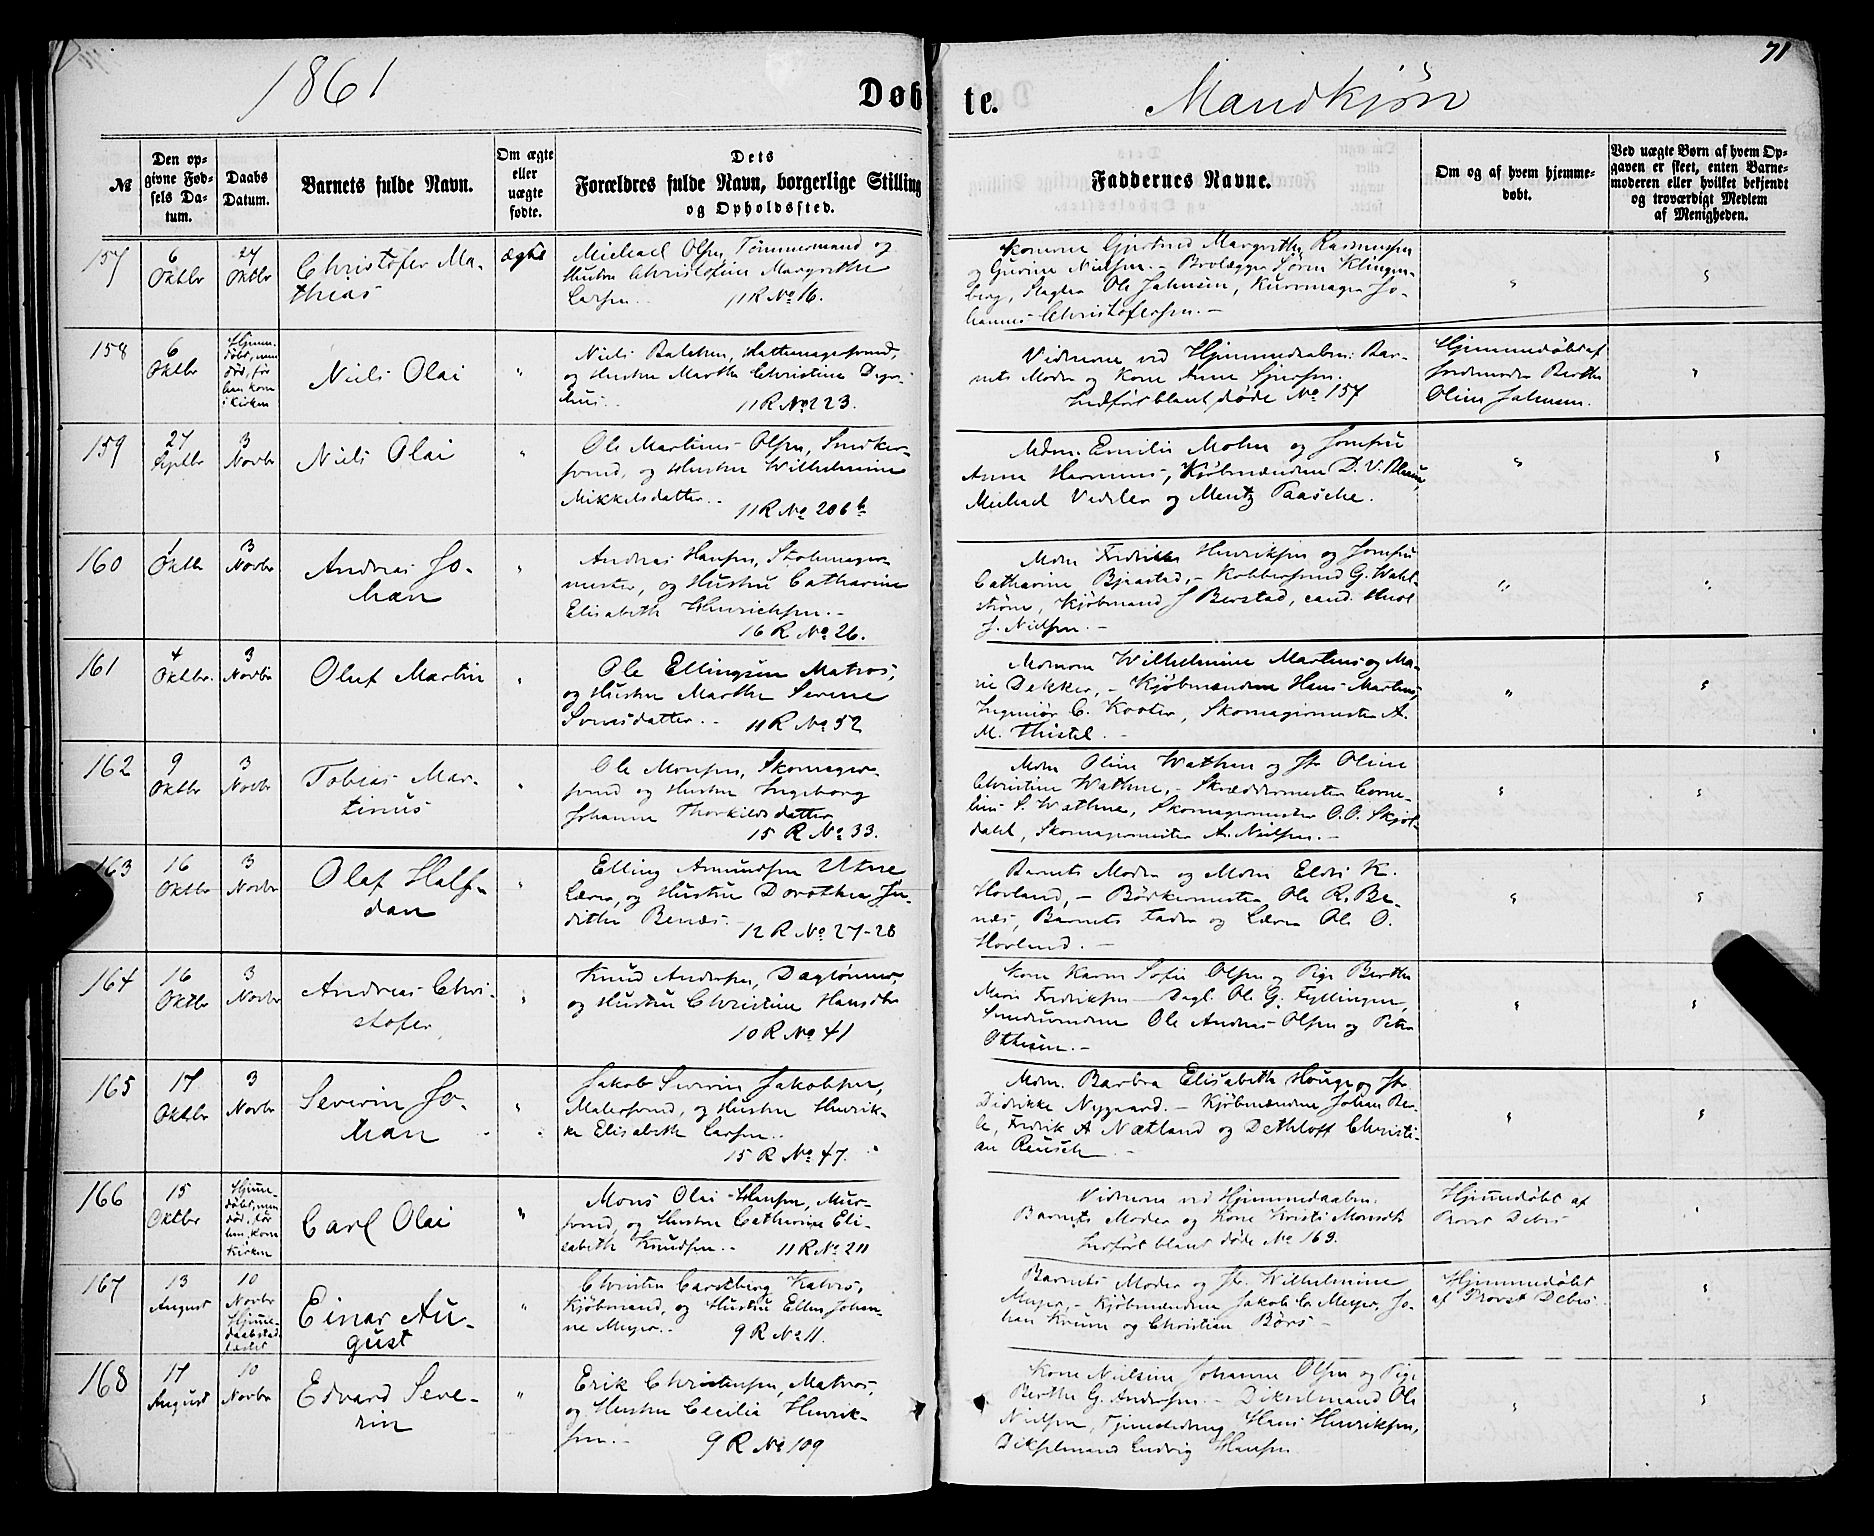 1861
Døbte.
Mandkjön
71
№
Den op-
givne Fød-
sels Da-
tum.
Daabs
Datum.
Barnets fulde Navn.
Om ægte
eller
uægte
fødte.
Dets
Forældres fulde Navn, borgerlige Stilling
og Opholdssted.
Faddernes Navne.
Om og af hvem hjemme-
døbt.
Ved uægte Børn af hvem Op-
gaven er skeet, enten Barne-
moderen eller hvilket bekjendt
og troværdigt Medlem
af Menigheden.
157
6
Oktbr
27
Oktbr
Christofer Ma-
thias
ægte
Michael Olsen, Tömmermand og
Hustru Christofine Margrethe
Larsen.
11 R No 16.
Konerne Gjertrud Margrethe Rasmussen
og Gurine Nielsen. - Brolægger Sören Klingen-
berg, Slagter Ole Johnsen, Kurvmager Jo-
hannes Christofersen. -
158
6
Oktbr
Hjemme-
döbt, men
död, för
han kom
i Kirken
Niels Olai
"
Niels Balchen, Hattemagersvend,
og Hustru Marthe Christine
11 R No 223.
Vidnerne ved Hjemmedaaben: Bar-
nets Moder og Kone Anne
Indfört blant döde No 157
Hjemmedöbt af
Jordemoder Berthe
Oline Johnsen.
"
159
27
Septbr
3
Novbr
Niels Olai
"
Ole Martinus Olsen, Snedker-
svend, og Hustru Wilhelmine
Mikkelsdatter.
11 R No 206 b
Mdm. Emilie Mohn og Jomfru
Anna Harmens, Kjöbmændene D. V.
Michael Vedeler og Mentz Paasche.
"
"
160
1
Oktbr
3
Novbr
Andreas Jo-
han
"
Andreas Hansen, Stolemager-
mester, og Hustru Catharine
Elisabeth Henrichsen. -
16 R No 26.
Mdm Fredrikke Henriksen og Jomfru
Catharine Bjerstad, - Kobbersmed G. Wahl-
ström, Kjöbmand J Berstad, cand. theol
J. Nielsen. -
"
"
161
4
Oktbr.
3
Novbr
Oluf Martin
"
Ole Ellingsen Matros,
og Hustru Marthe Serene
11 R No 52
Mdmerne Wilhelmine Martens og Ma-
rie Dekker, - Kjöbmændene Hans Martens,
Ingeniör C. Koster, Skomagermester A.
M. Thistel. -
"
"
162
9
Oktbr
3
Novbr
Tobias Mar-
tinus
"
Ole Monsen, Skomager-
svend og Hustru Ingeborg
Johanne Thorkildsdatter
15 R No 33.
Mdm Oline Wathne og Jfr Oline
Christine Wathne, - Skræddermester Corne-
lius S. Wathne, Skomagermester O. O. Skjol-
dahl, Skomagermester A. Nielsen. -
"
"
163
16
Oktbr
3
Novbr
Olaf Half-
dan
"
Elling Amundsen Utne
Lærer, og Hustru Dorothea Ju-
dithe Benæs.
12 R No 27-28
Barnets Moder og Mdm Eldri K.
Hovland, - Bödkermester Ole R. Be-
næs, Barnets Fader og Lærer Ole O.
Hovland. -
"
"
164
16
Oktbr
3
Novbr
Andreas Chri-
stofer
"
Knud Andersen, Daglönner,
og Hustru Christine Hansdtr
10 R No 41
Kone Karen Sofie Olsen og Pige Berthe
Marie Fredriksen - Dagl. Ole G. Fyllingen,
Smedsvendene Ole Andreas Olsen og Peter
Ottesen. -
"
"
165
17
Oktbr
3
Novbr
Severin Jo-
han
"
Jakob Severin Jakobsen,
Malersvend, og Hustru Henrik-
ke Elisabeth Larsen.
15 R No 47.
Mdm. Barbra Elisabeth Houge og Jfr.
Didrikke Nygaard. - Kjöbmændene Johan Ber-
le, Fredrik A Nætland og Dethloff Christi-
an Reusch. -
"
"
166
15
Oktbr
Hjemme-
döbt, men
död, för
han kom
i Kirken
Carl Olai
"
Mons Olai Hansen, Mur-
svend, og Hustru Catharine Eli-
sabeth Knudsen. -
11 R No 211
Vidnerne ved Hjemmedaaben:
Barnets Moder og Kone Kristi Monsdtr
Indfört blant döde No 169.
Hjemmedöbt af
Provst Debes
"
167
13
August
10
Novbr
Hjemme-
daab stad-
fæstet
Einar Au-
gust
"
Christen Carstberg Kahrs,
Kjöbmand, og Hustru Ellen Johan-
ne Meyer. -
9 R No 11.
Barnets Moder og Jfr. Wilhelmine
Meyer, - Kjöbmændene Jakob C. Meyer, Jo-
han Krüm og Christian Börs -
Hjemmedöbt
af Provst Debes.
"
168
17
August
10
Novbr
Edvard Seve-
rin
"
Erik Christensen, Matros,
og Hustru Cecilia Henrik-
sen. -
9 R No 109
Kone Nielsine Johanne Olsen og Pige
Berthe G. Andersen. - Dikselmand Ole
Nielsen, Tjenestedreng Hans Henriksen,
Dikselmand Ludvig Hansen
"
"